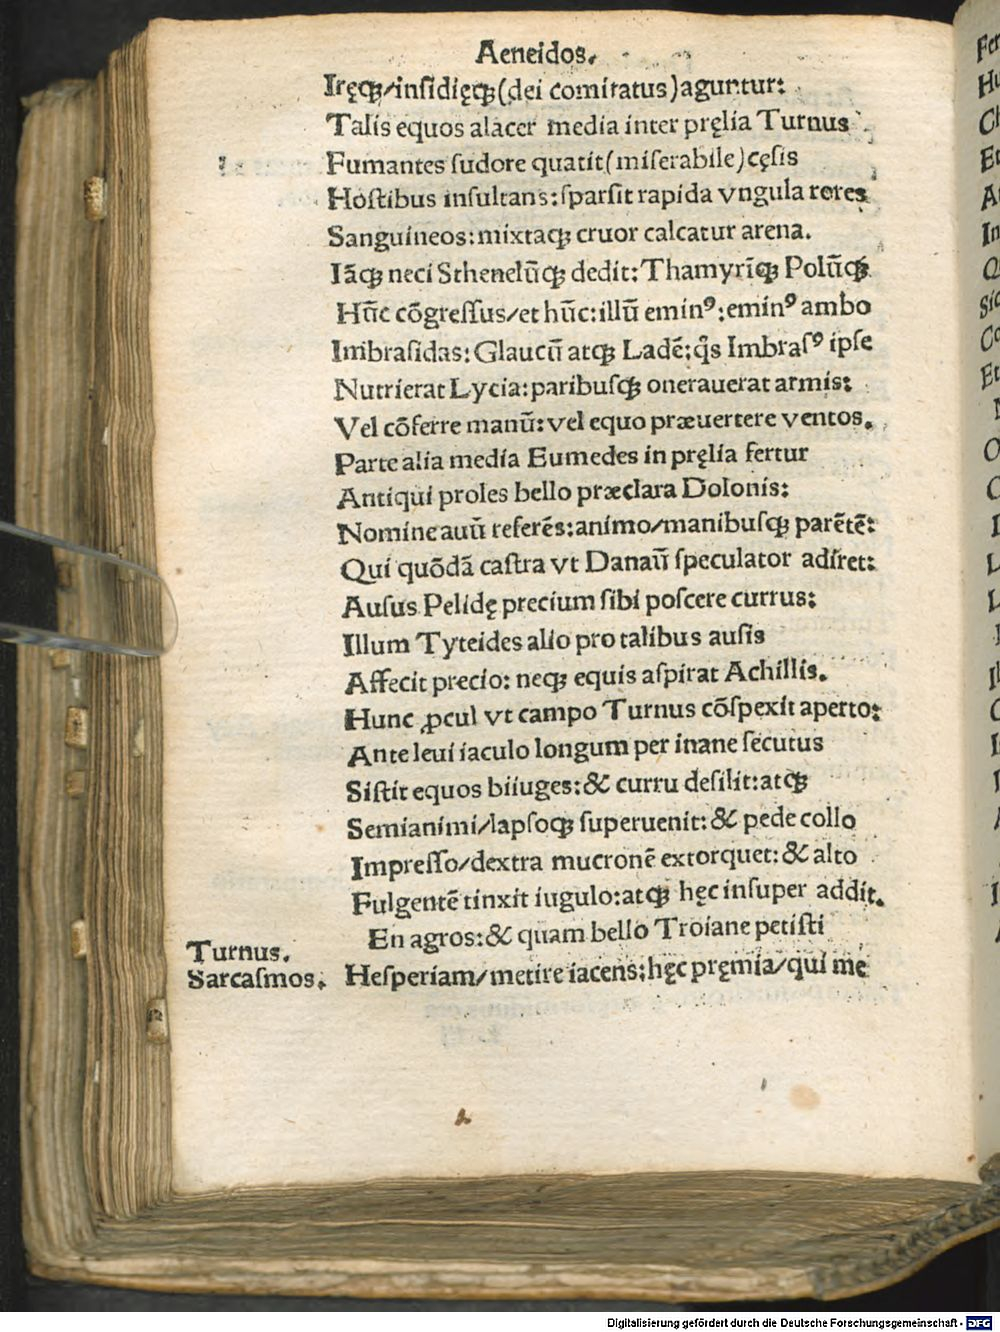 Aeneidos.
Iręqꝫ/inſidięqꝫ(dei comitatus)aguntur:
Talis equos alacer media inter pręlia Turnus
Fumantes ſudore quatit(miſerabile)cęſis
Hoſtibus inſultans:ſparſit rapida vngula rores
Sanguineos:mixtaqꝫ cruor calcatur arena.
Iāqꝫ neci Sthenelūqꝫ dedit:Thamyrīqꝫ Polūqꝫ
Hūc cōgreſſus/et hūc:illū eminꝰ:eminꝰ ambo
Imbraſidas:Glaucū atqꝫ Ladē:q̄s Imbraſꝰ ipſe
Nutrierat Lycia:paribuſqꝫ onerauerat armis:
Vel cōferre manū:vel equo præuertere ventos.
Parte alia media Eumedes in pręlia fertur
Antiqui proles bello præclara Dolonis:
Nomine auū referēs:animo/manibuſqꝫ parētē:
Qui quōdā caſtra vt Danaū ſpeculator adiret:
Auſus Pelidę precium ſibi poſcere currus:
Illum Tyteides alio pro talibus auſis
Affecit precio: neqꝫ equis aſpirat Achillis.
Hunc ꝓcul vt campo Turnus cōſpexit aperto:
Ante leui iaculo longum per inane ſecutus
Siſtit equos biiuges:& curru deſilit:atqꝫ
Semianimi/lapſoqꝫ ſuperuenit:& pede collo
Impreſſo/dextra mucronē extorquet:& alto
Fulgentē tinxit iugulo:atqꝫ hęc inſuper addit.
En agros:& quam bello Troiane petiſti
Turnus.
Sarcaſmos. Heſperiam/metire iacens:hęc pręmia/qui me
Digitalisierung gefördert durch die Deutsche Forschungsgemeinschaft - DFG